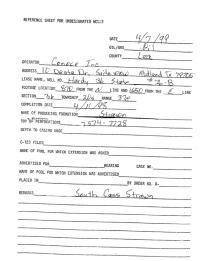 REFERENCE SHEET FOR UNDESIGNATED WELLS
DATE 4/7/99
OIL/GAS Oil
COUNTY Lea
OPERATOR Conoco Inc
ADDRESS 10 Desta Dr. Midland Tx 79705
LEASE NAME, WELL NO. Hardy 36 State # 3-B
FOOTAGE LOCATION FROM THE N LINE AND 1650 FROM THE E LINE
SECTION 36 TOWNSHIP RANGE
COMPLETION DATE
NAME OF PRODUCING FORMATION Strawn
TOP OF PERFORATIONS 7574-7728
DEPTH TO CASING SHOE
C-123 FILED
NAME OF POOL FOR WHICH EXTENSION WAS ASKED
ADVERTISED FOR HEARING CASE NO.
NAME OF POOL FOR WHICH EXTENSION WAS ADVERTISED
PLACED IN BY ORDER NO. R-
REMARKS South Cass Strawn